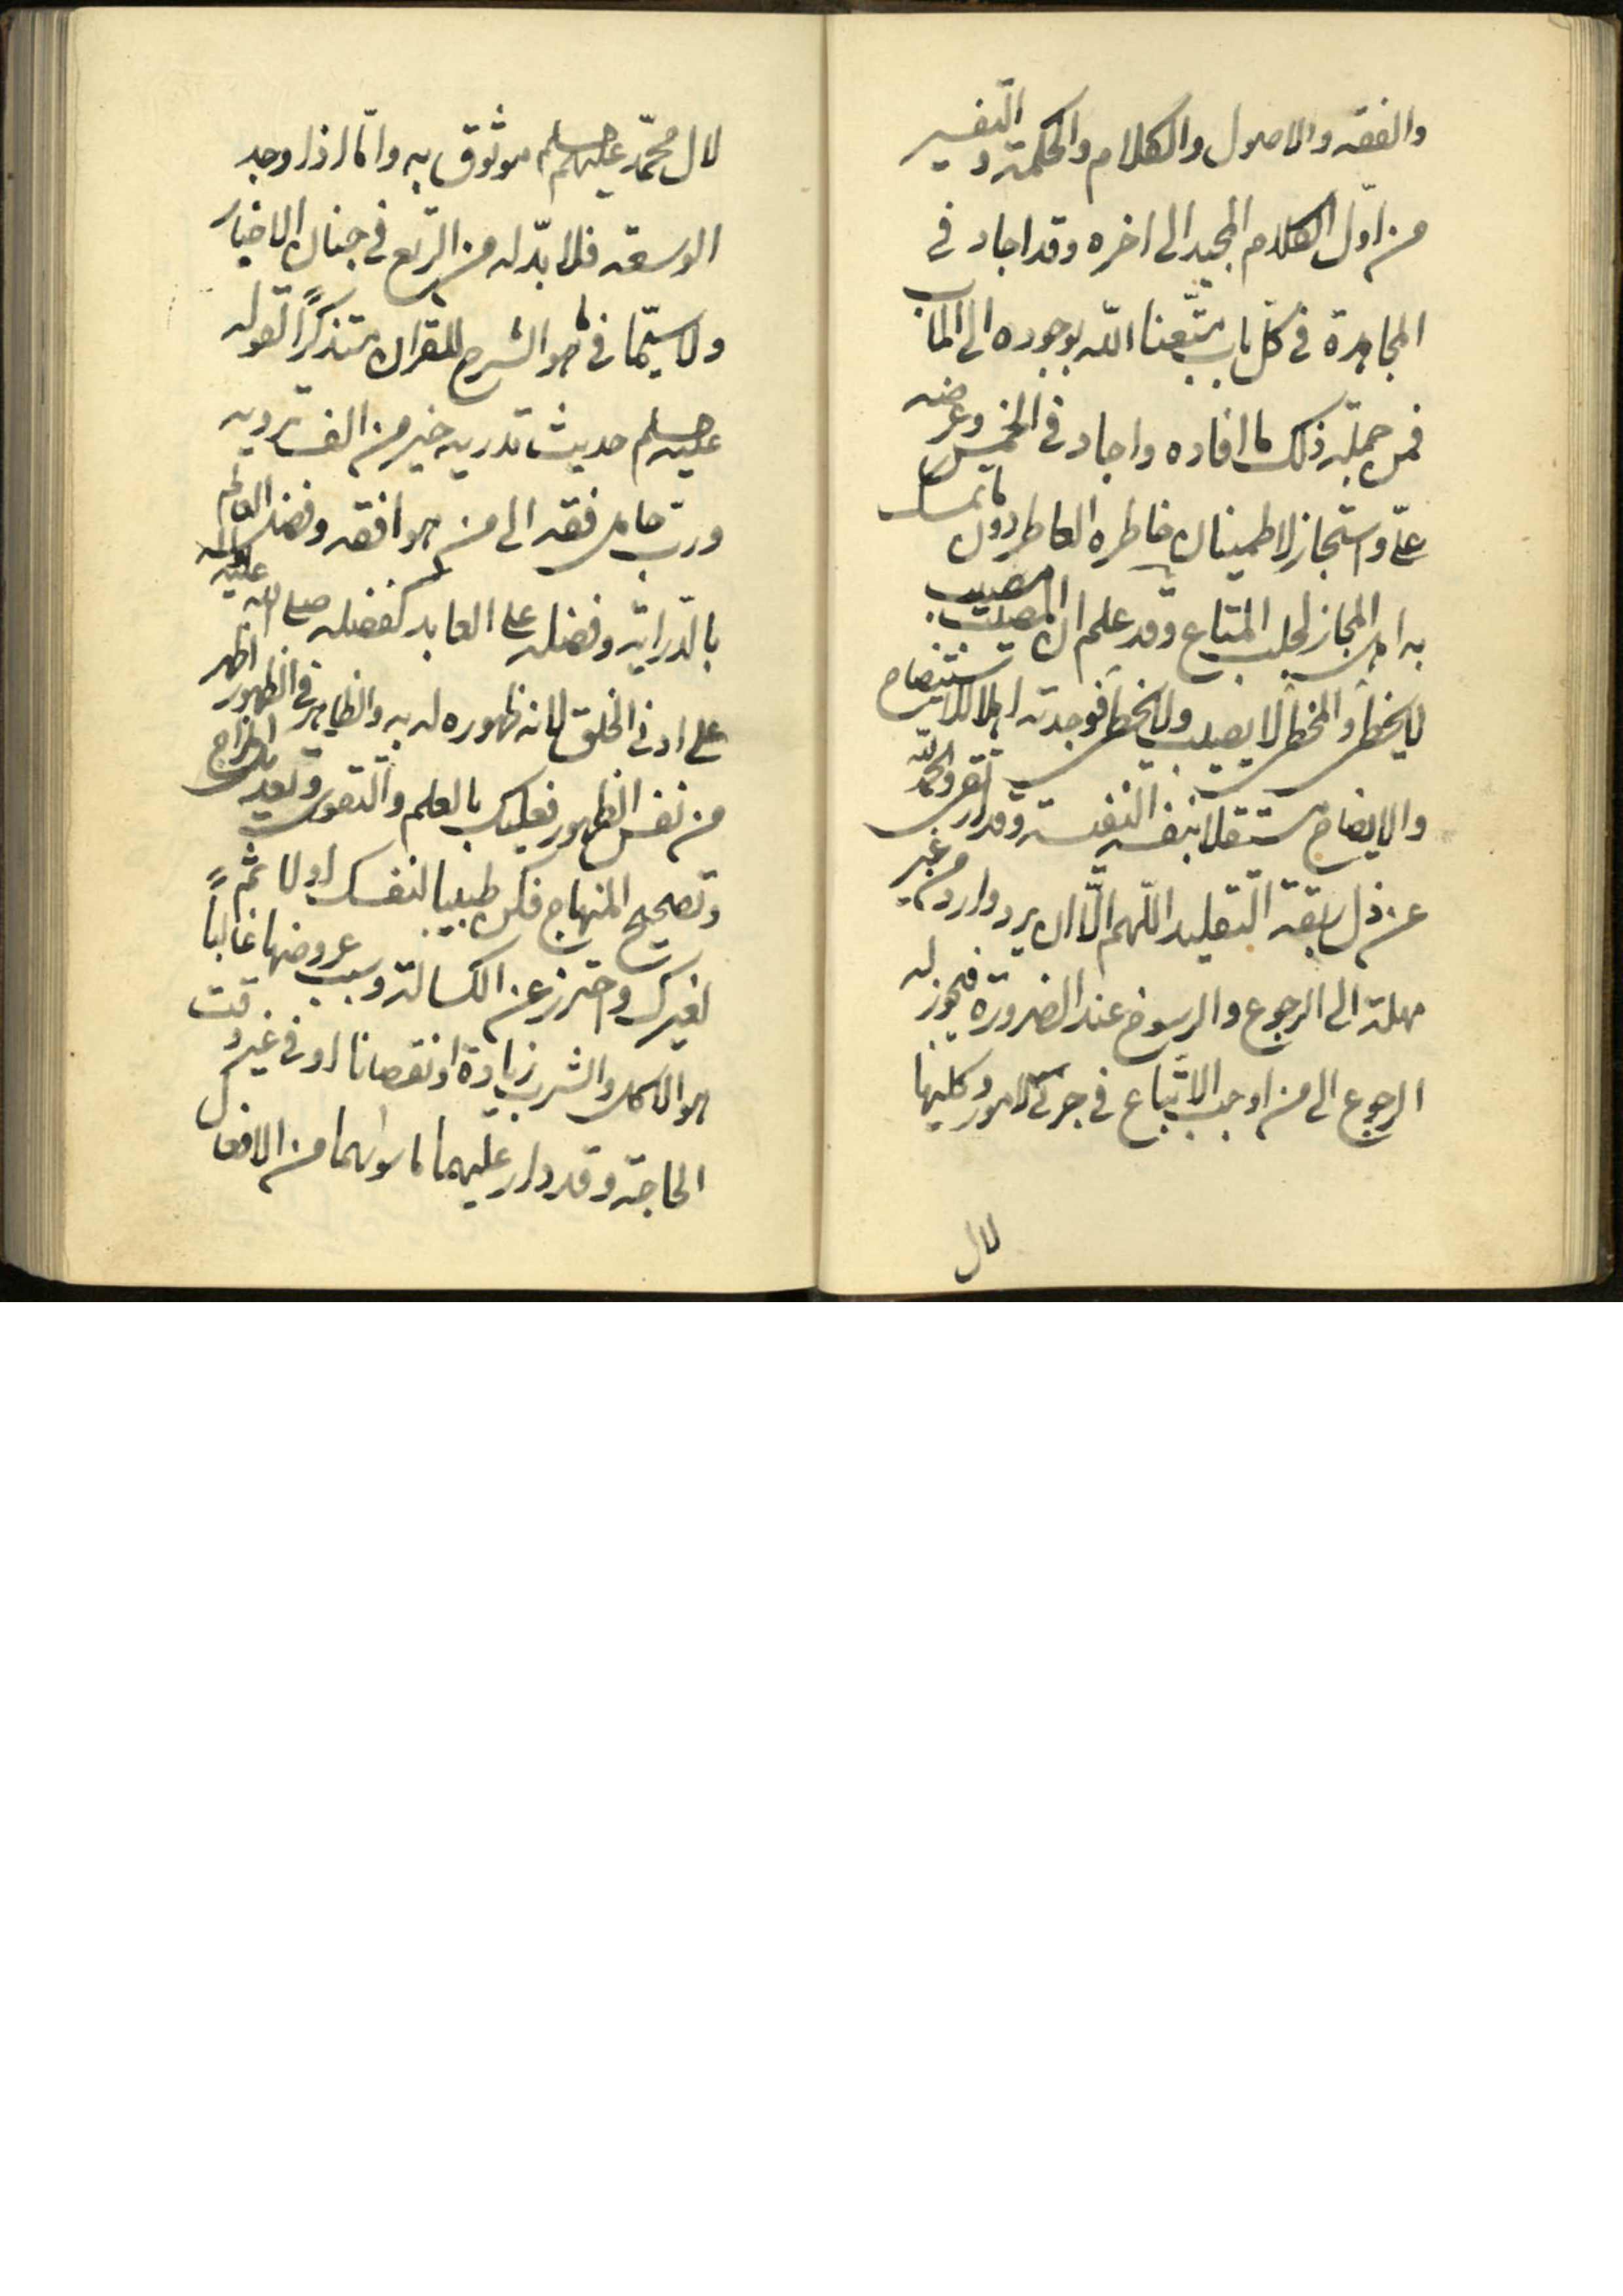 والفقه والاصول والكلام والحكمة و التفسير
من اوّل الكلام المجيد الى اخره وقد اجاد فى
المجاهدة فى كلّ باب متّعنا اللّه بوجوده الى المآب
فمن جملة ذلك ما افاده واجاد فى الخمس وعرضه
علىّ واستجاز لاطمينان خاطره العاطر دون ما يتمسك
به اهل المجاز لجلب المتاع وقد علم ان المصيب
لا يخطئ والمخطئ لا يصيب ولا يخطئ فوجدته اهلا للاستيضاح
والايضاح مستقلا بنفسه النفيسة وقد ارتقى والحمد للّه
عن ذل ربقة التقليد اللّهم الّا ان يرد وارد من غير
مهلة الى الرجوع والرسوخ عند الضرورة فيجوز له
الرجوع الى من اوجب الاتّباع فى جزئى الامور وكليها
لال
لال محمّد عليهم سلم موثوق به وامّا اذا وجد
الوسعة فلا بدّ له من الرّتع فى جنان الاخبار
ولا سيّما فى ما هو الشرح للقران متذكراً لقوله
عليه سلم حديث تدريه خير من الف ترويه
وربّ حامل فقه الى من هو افقه وفضل العالم
بالدّراية وفضله على العابد كفضله صلى اللّه عليه واله
على ادنى الخلق لانه ظهوره له به والظاهر فى الظهور اظهر
من نفس الظهور فعليك بالعلم والتقوى وتعديل المزاج
وتصحيح المنهاج فكن طبيبا لنفسك اولا ثمّ
لغيرك واحترز عن الكسالة وسبب عروضها غالباً
هو الاكل والشرب زيادة او نقصانا او فى غير وقت
الحاجة وقد دار عليهما ما سواهما من الافعال